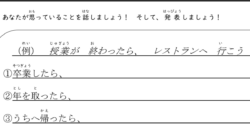 あなたが思っていることを話しましょう！ そして、発表しましょう！
（例） 授業が 終わったら、 レストランへ 行こう
①卒業したら、
②年を取ったら、
③うちへ帰ったら、